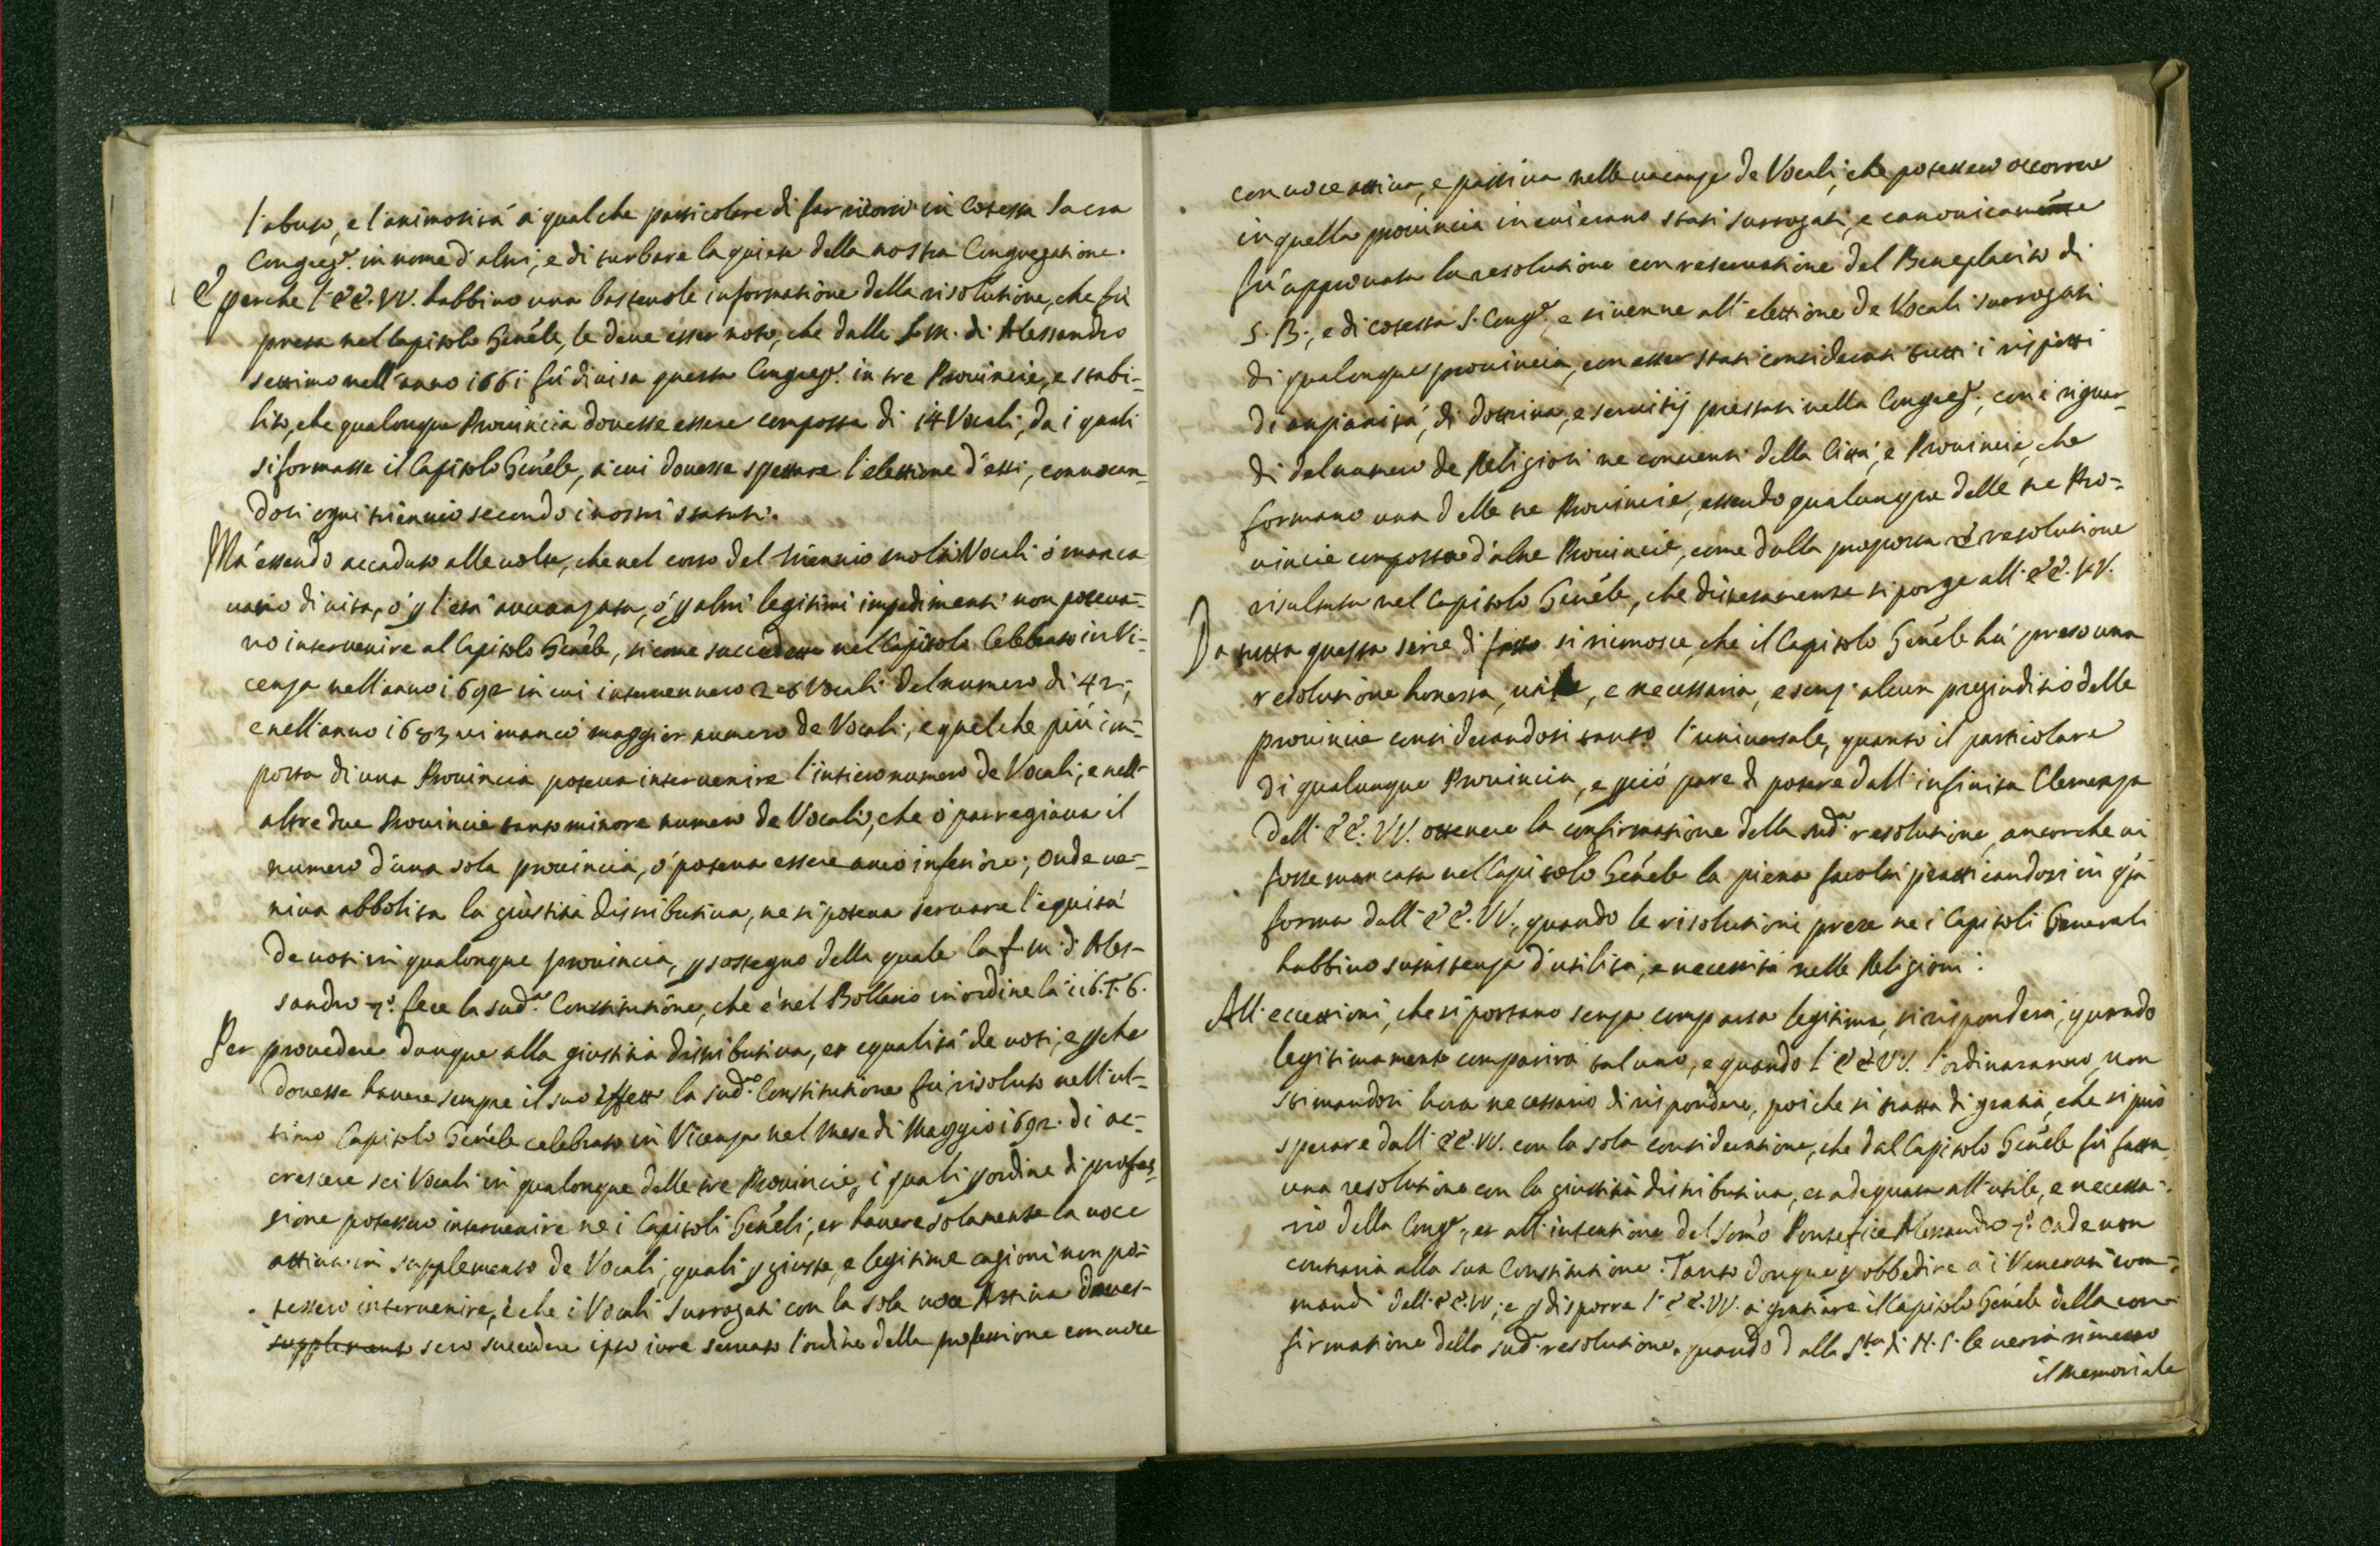 l'abuso, e l'animosità à qualche particolare di far ricorsi in cotesta Sacra
Congreg.e in nome d'altri, e di turbare la quiete della nostra Congregatione.
E perche l'EE. VV. habbino una bastevole informatione della risolutione, che fù
presa nel Capitolo Gen'ele, le deve esser noto, che dalla f. m. di Alessandro
settimo nell'anno 1661 fù divisa questa Congreg.e in tre Provincie, e stabi-
lito, che qualonque Provincia dovesse essere composta di 14 Vocali, da i quali
si formasse il Capitolo Gen'ele, à cui dovesse spettare l'elettione d'essi, convocan-
dosi ogni triennio secondo i nostri statuti.
Mà essendo accaduto alle volte, che nel corso del triennio molti Vocali ò manca
vano di vita, ò p l'età avvanzata, ò p altri legitimi impedimenti non poteva-
no intervenire al Capitolo Gen'ele, si come succedette nel Capitolo Celebrato in Vi-
cenza nell'anno 1692 in cui intervennero 26 Vocali del numero di 42;
e nell'anno 1683 vi mancò maggior numero de Vocali, e quel che più im-
porta di una Provincia poteva intervenire l'intiero numero de Vocali, e nell'
altre due Provincie tanto minore numero de Vocali, che ò parregiava il
numero d'una sola provincia, ò poteva essere anco inferiore; Onde ve-
niva abbolita la giustitia distributiva, ne si poteva servare l'equità
de voti in qualonque provincia, p sostegno della quale la f. m. di Ales-
sandro 7.o fece la sud.a Constitutione, che è nel Bollario in ordine la 116. T. 6.
Per provedere donque alla giustitia distributiva, et equalità de voti, e p che
dovesse havere sempre il suo effetto la sud.a Constitutione fù risoluto nell'ul-
timo Capitolo Gen'ele celebrato in Vicenza nel mese di Maggio 1692. di ac-
crescere sei Vocali in qualonque delle tre Provincie, i quali p ordine di profes-
sione potessero intervenire ne i Capitoli Gen'eli, et havere solamente la voce
attiva in supplemento de Vocali, quali p giuste, e legitime cagioni non po-
tessero intervenire, e che i Vocali surrogati con la sola voce Attiva doves-
supplemento sero succedere ipso iure servato l'ordine della professione con voce
con voce attiva, e passiva nelle vacanze de Vocali, che potessero occorrere
in quella provincia in cui erano stati surrogati, e canonicamente
fù approvata la resolutione con reservatione del Beneplacito di
S. B., e di cotesta S. Cong.e, e si venne all'elettione de Vocali surrogati
di qualonque provincia, con esser stati considerati tutti i rispetti
di anzianità, di dottrina, e servitij prestati nella Congreg.e, con i riguar-
di del numero de Religiosi ne conventi della Città, e Provincie, che
formano una delle tre Provincie, essendo qualunque delle tre Pro-
vincie composta d'altre Provincie, come dalla proposta e resolutione
risultata nel Capitolo Gen'ele, che distesamente si porge all'EE. VV.
Da tutta questa serie di fatto si riconosce, che il Capitolo Gen'ele hà preso una
resolutione honesta, utile, e necessaria, e senz'alcun pregiuditio delle
provincie considerandosi tanto l'universale, quanto il particolare
di qualunque Provincia, e p ciò pare di potere dall'infinita Clemenza
dell'EE. VV. ottenere la confirmatione della sud.a resolutione, ancorche vi
fosse mancata nel Capitolo Gen'ele la piena facoltà pratticandosi in q'ta
forma dall'EE. VV., quando le risolutioni prese ne i Capitoli Generali
habbino sussistenza d'utilità, e necessità nelle Religioni.
All'eccettioni, che si portano senza comparsa legitima, si risponderà, quando
legitimamente comparirà taluno, e quando l'EE. VV. l'ordinaranno, non
stimandosi hora necessario di rispondere, poiche si tratta di gratia, che si può
sperare dall'EE. VV. con la sola consideratione, che dal Capitolo Gen'ele fù fatta
una resolutione con la giustitia distributiva, et adequata all'utile, e necessa-
rio della Cong.e, et all'intentione del Som'o Pontefice Alessandro 7.o onde non
contraria alla sua Constitutione. Tanto donque p obbedire a i Venerati com-
mandi dell'EE. VV., e p disporre l'EE. VV. à gratiare il Capitolo Gen'ele della con-
firmatione della sud.a resolutione, quando dalla S.tà di N. S. le verrà rimesso
il memoriale